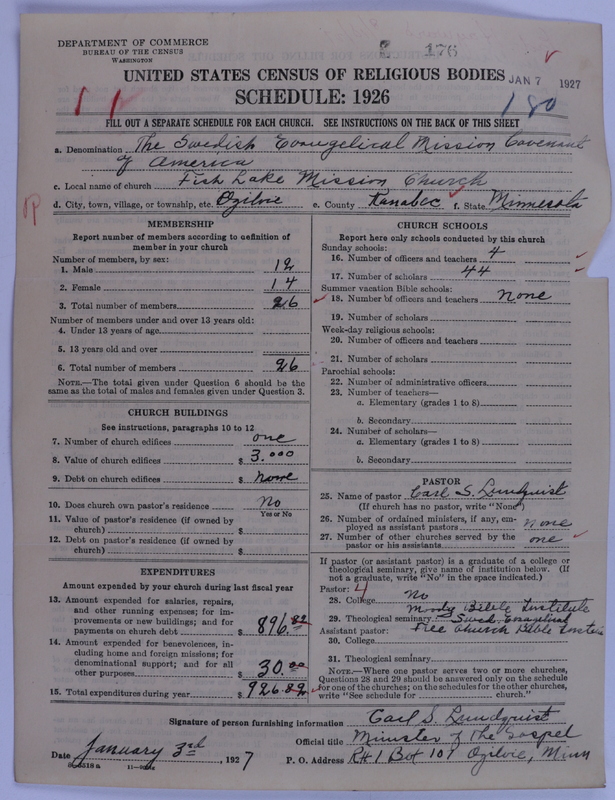 DEPARTMENT OF COMMERCE
BUREAU OF THE CENSUS
WASHINGTON
176
UNITED STATES CENSUS OF RELIGIOUS BODIES
JAN 7 1927
SCHEDULE: 1926
180
FILL OUT A SEPARATE SCHEDULE FOR EACH CHURCH. SEE INSTRUCTIONS ON THE BACK OF THIS SHEET
a. Denomination The Swedish Evangelical Mission Covenant
of America
c. Local name of church Fish Lake Mission Church
d. City, town, village, or township, etc. Ogilvie e. County Kanabec f. State Minnesota
MEMBERSHIP
Report number of members according to definition of
member in your church
Number of members, by sex:
1. Male 12
2. Female 14
3. Total number of members 26
Number of members under and over 13 years old:
4. Under 13 years of age
5. 13 years old and over
6. Total number of members 26
NOTE.—The total given under Question 6 should be the
same as the total of males and females given under Question 3.
CHURCH BUILDINGS
See instructions, paragraphs 10 to 12
7. Number of church edifices one
8. Value of church edifices $ 3.000
9. Debt on church edifices $ none
10. Does church own pastor's residence? No
Yes or No
11. Value of pastor's residence (if owned by
church) $
12. Debt on pastor's residence (if owned by
church) $
EXPENDITURES
Amount expended by your church during last fiscal year
13. Amount expended for salaries, repairs,
and other running expenses; for im-
provements or new buildings; and for
payments on church debt $ 896.82
14. Amount expended for benevolences, in-
cluding home and foreign missions; for
denominational support; and for all
other purposes $ 30.00
15. Total expenditures during year $ 926.82
CHURCH SCHOOLS
Report here only schools conducted by this church
Sunday schools:
16. Number of officers and teachers 4
17. Number of scholars 44
Summer vacation Bible schools:
18. Number of officers and teachers none
19. Number of scholars
Week-day religious schools:
20. Number of officers and teachers
21. Number of scholars
Parochial schools:
22. Number of administrative officers
23. Number of teachers—
a. Elementary (grades 1 to 8)
b. Secondary
24. Number of scholars—
a. Elementary (grades 1 to 8)
b. Secondary
PASTOR
25. Name of pastor Carl S. Lundquist
(If church has no pastor, write "None")
26. Number of ordained ministers, if any, em-
ployed as assistant pastors none
27. Number of other churches served by the
pastor or his assistants one
If pastor (or assistant pastor) is a graduate of a college or
theological seminary, give name of institution below. (If
not a graduate, write "No" in the space indicated.)
Pastor: 4
28. College No
Moody Bible Institute
29. Theological seminary Swed. Evangelical
Assistant pastor: Free Church Bible Institute
30. College
31. Theological seminary
NOTE.—Where one pastor serves two or more churches,
Questions 28 and 29 should be answered only on the schedule
for one of the churches; on the schedules for the other churches,
write "See schedule for church."
Signature of person furnishing information Carl S. Lundquist
Official title Minister of the Gospel
Date January 3rd, 1927 P. O. Address R#1 Box 107 Ogilvie, Minn